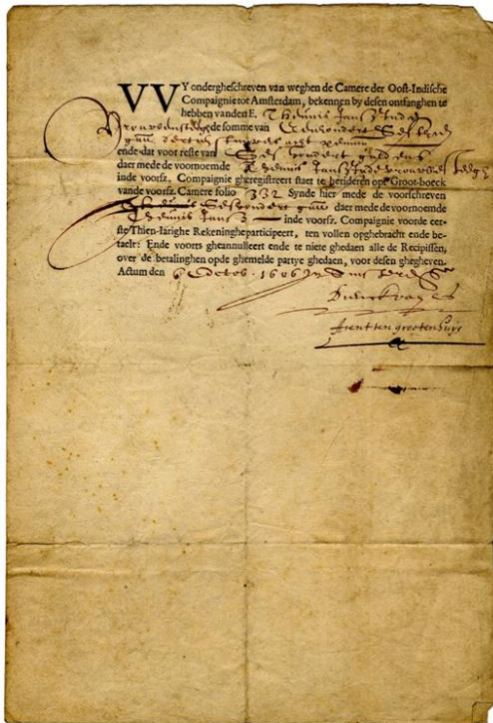 VVY ondergheschreven van weghen de Camere der Oost-Indische
Compaignie tot Amsterdam, bekennen by desen ontfanghen te
hebben vanden E. Theunis Jansz
de somme van
ende dat voor reste van Ses hondert guldens
daer mede de voornoemde Theunis Jansz
inde voorsz. Compaignie gheregistreert staet te betideren op 't Groot-boeck
vande voorsz. Camere folio 332 Synde hier mede de voorschreven
Ses hondert daer mede de voornoemde
Theunis Jansz inde voorsz. Compaignie voorde eer-
ste Thien-Iarighe Rekeninghe participeert, ten vollen opghebracht ende be-
taelt: Ende voorts gheannulleert ende te niete ghedaen alle de Recipissen,
over de betalinghen opde ghemelde partye ghedaen, voor desen ghegheven.
Actum den 1606
Dirck van Os
Arent ten grootenhuys